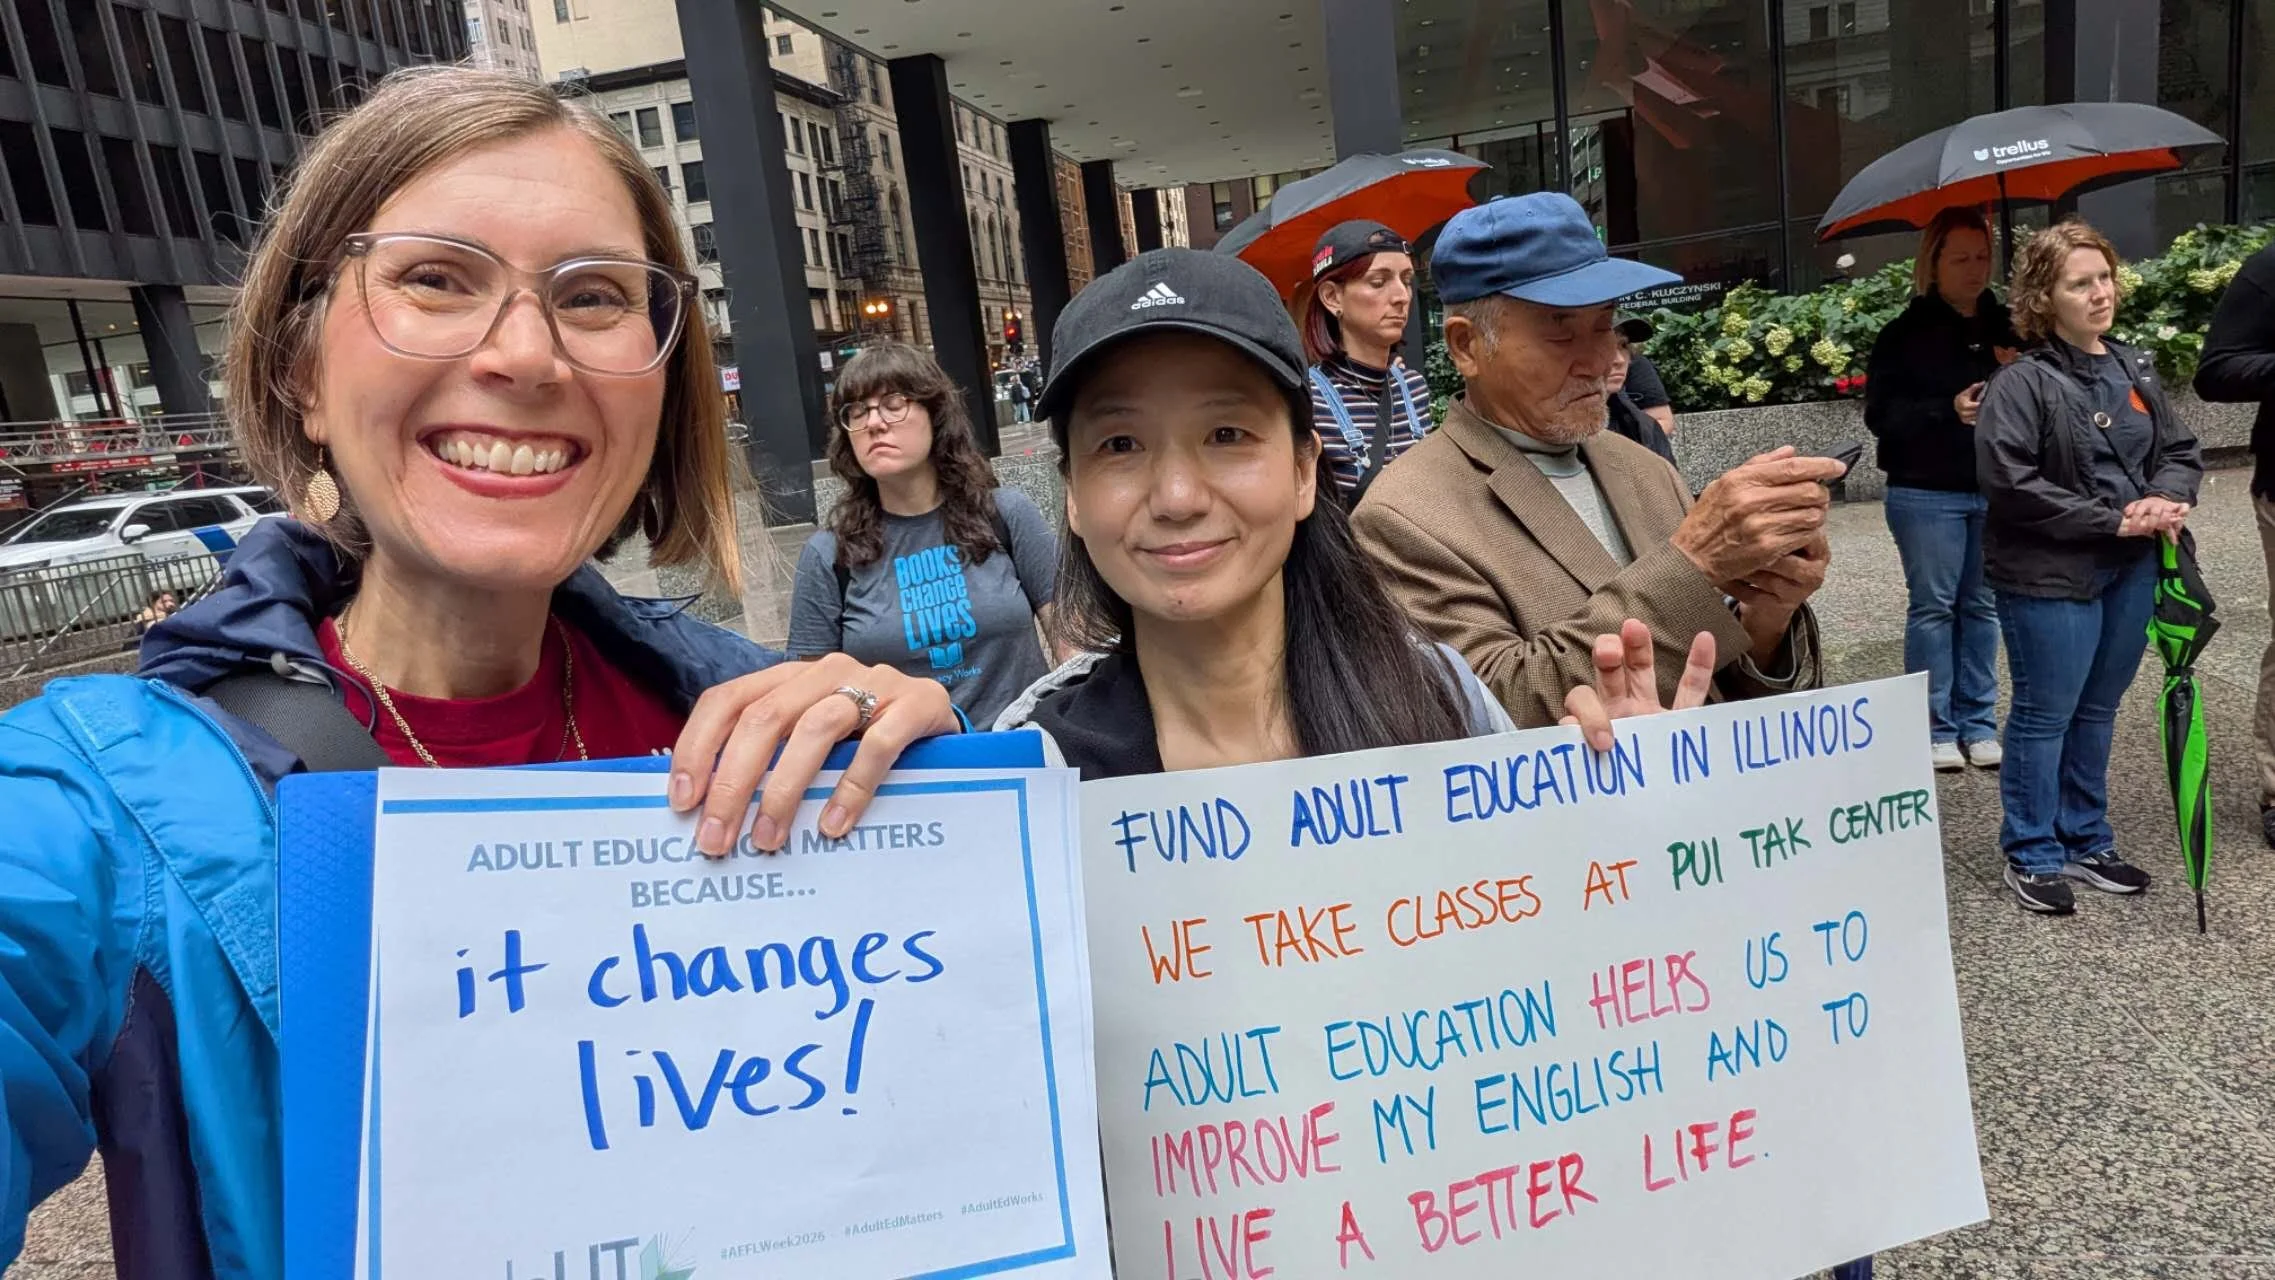 ADULT EDUCATION MATTERS
BECAUSE...
it changes
lives!
#AEFLWeek2026 #AdultEdMatters #AdultEdWorks
FUND ADULT EDUCATION IN ILLINOIS
WE TAKE CLASSES AT PUI TAK CENTER
ADULT EDUCATION HELPS US TO
IMPROVE MY ENGLISH AND TO
LIVE A BETTER LIFE.
adidas
BOOKS
CHANGE
LIVES
trellus
trellus
C. KLUCZYNSKI
FEDERAL BUILDING